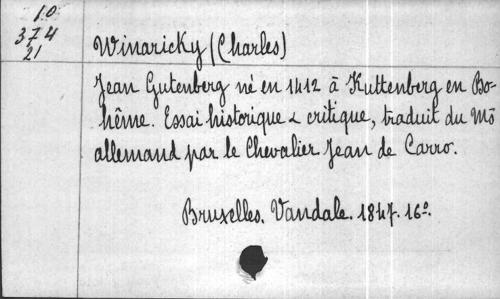 10
374
21
Winaricky (Charles)
Jean Gutenberg né en 1412 à Kuttenberg en Bo-
hême. Essai historique & critique, traduit du Mö
allemand par le Chevalier Jean de Carro.
Bruxelles. Vandale. 1847. 16º.